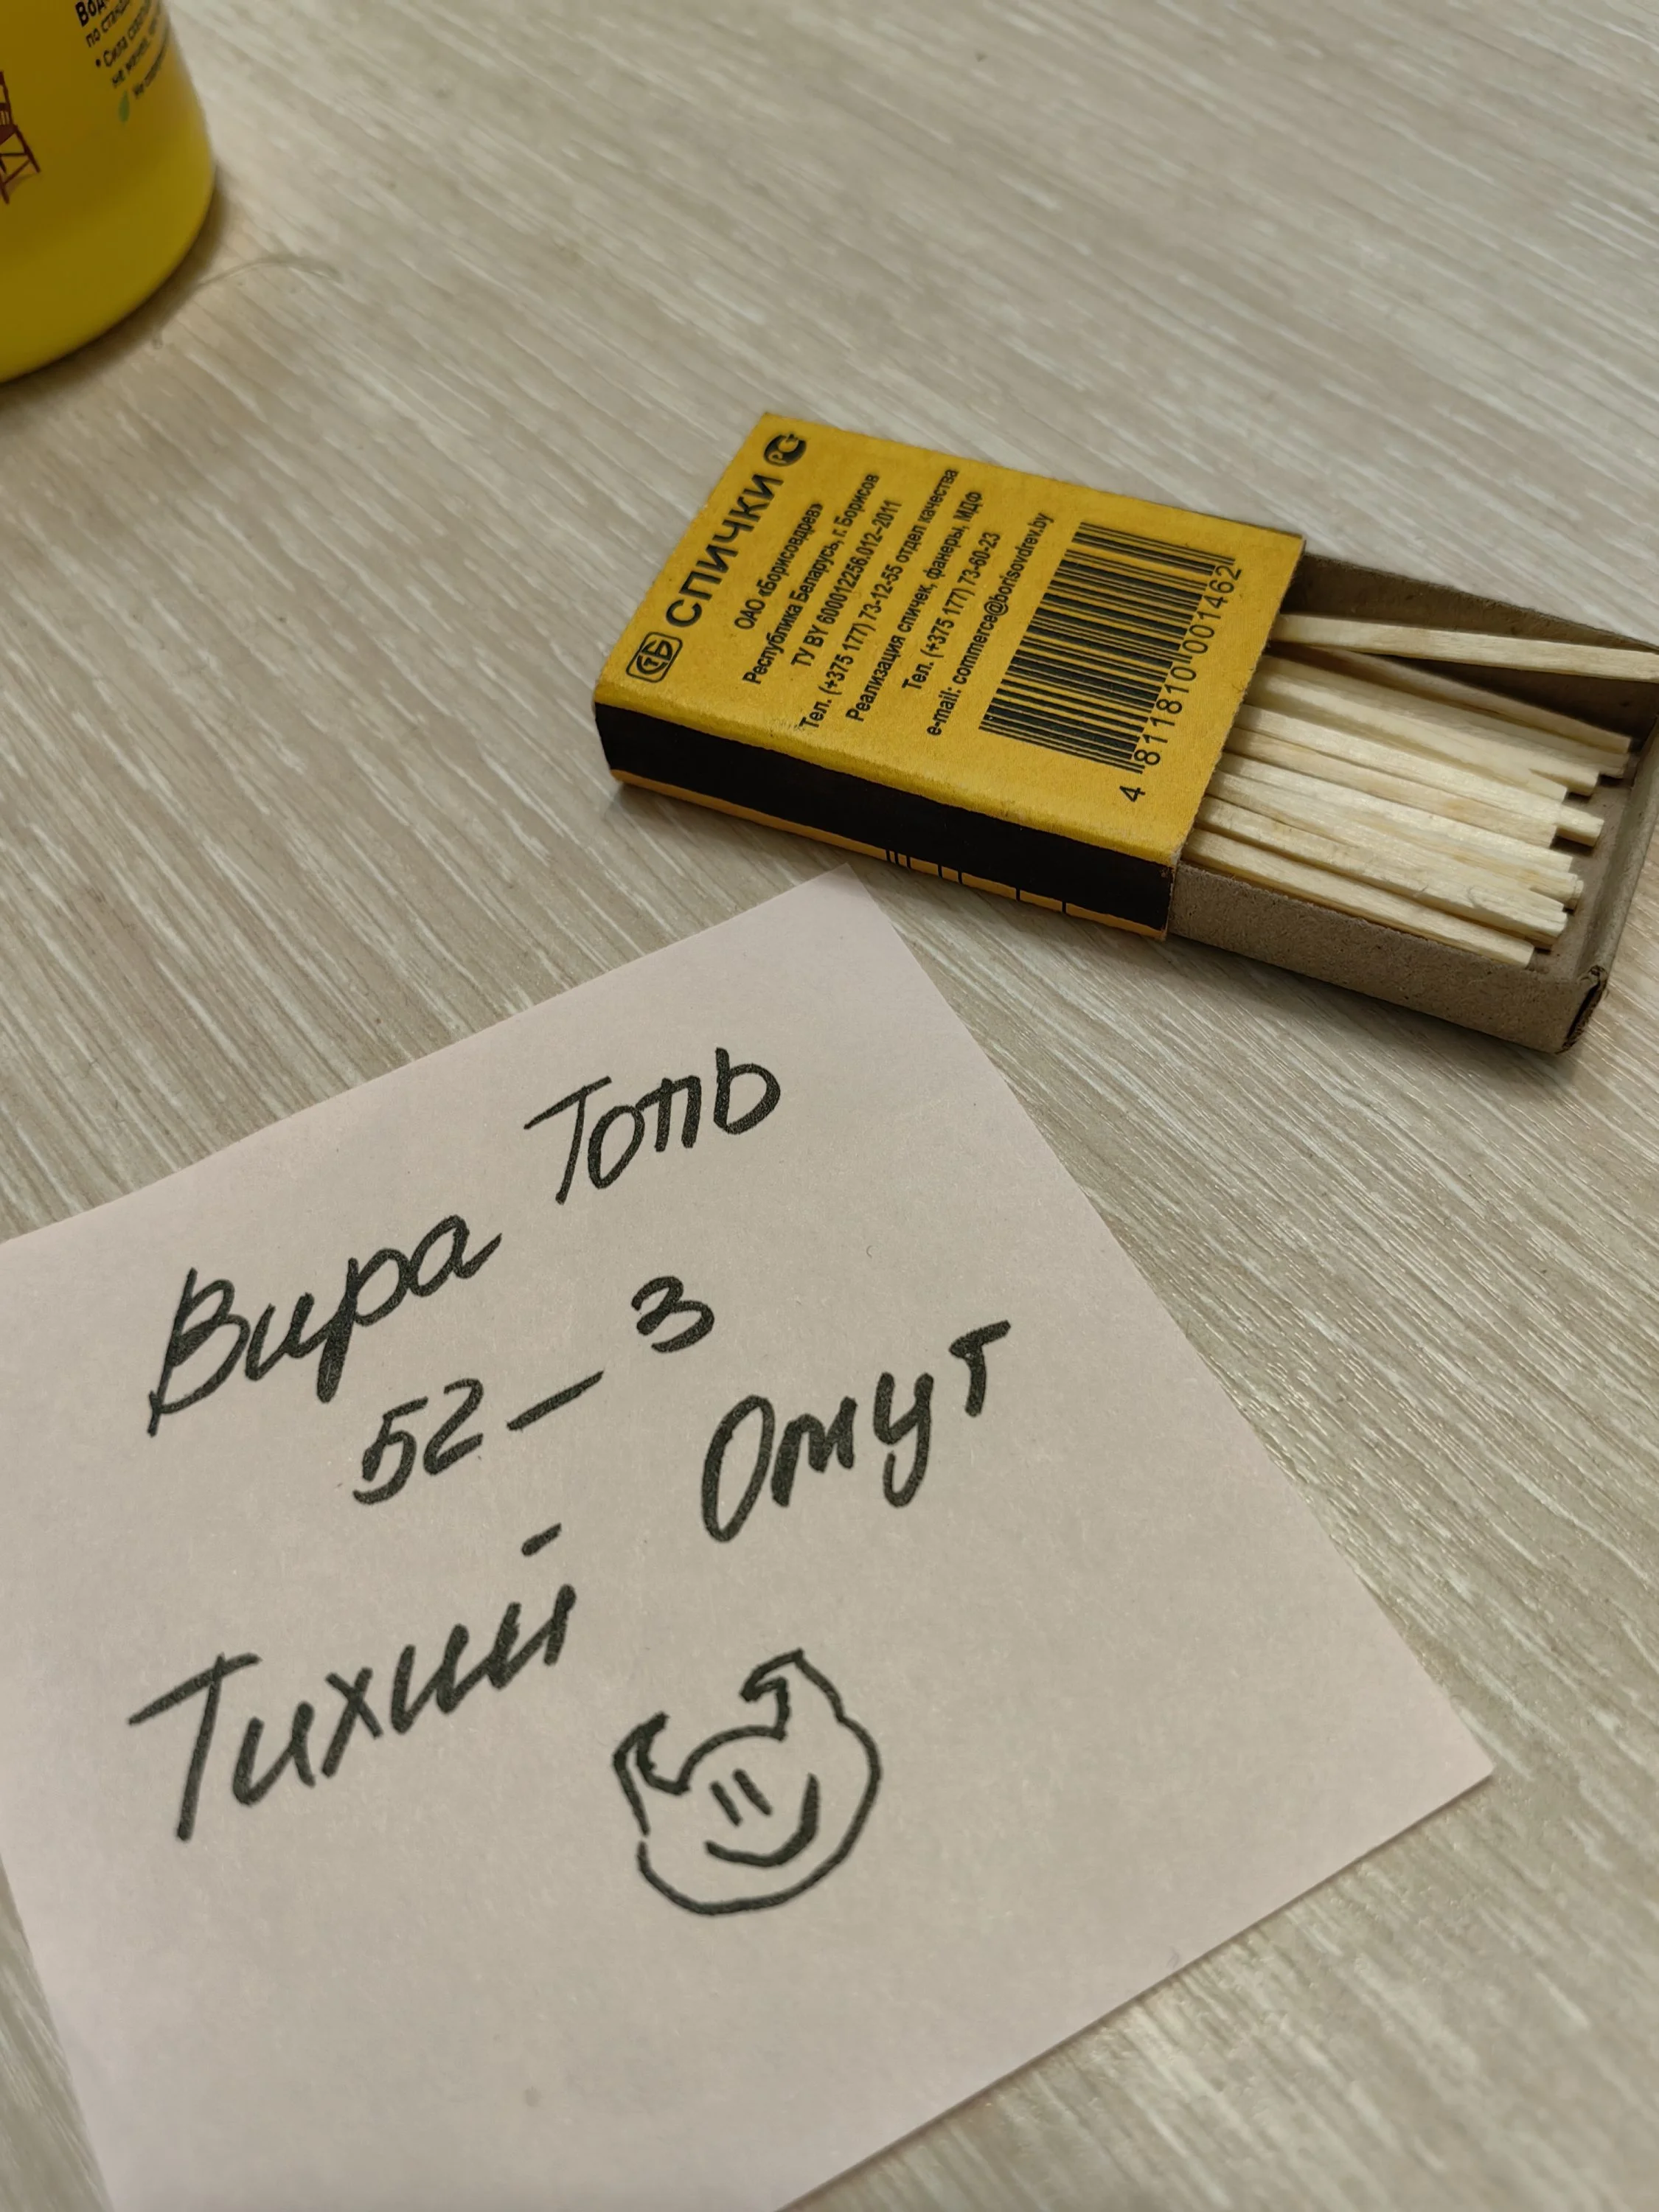 СПИЧКИ
ОАО «Борисовдрев»
Республика Беларусь, г. Борисов
ТУ BY 600012256.012–2011
Тел. (+375 177) 73-12-55 отдел качества
Реализация спичек, фанеры, МДФ
Тел. (+375 177) 73-60-23
e-mail: commerce@borisovdrev.by
4 811810 001462
Вира Топь
52 – 3
Тихий Омут